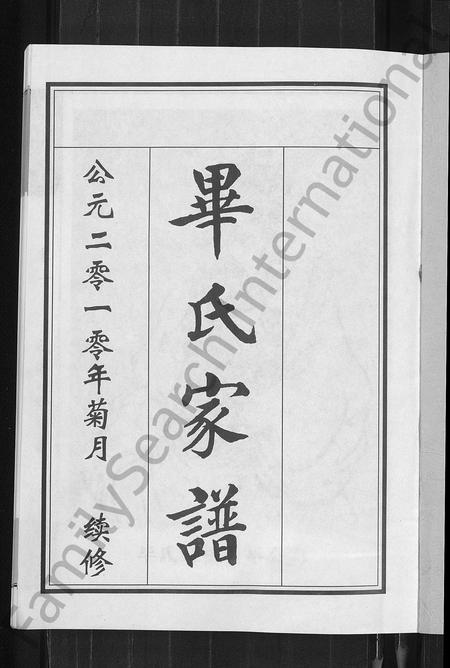 畢氏家譜
公元二零一零年菊月 续修
FamilySearch International